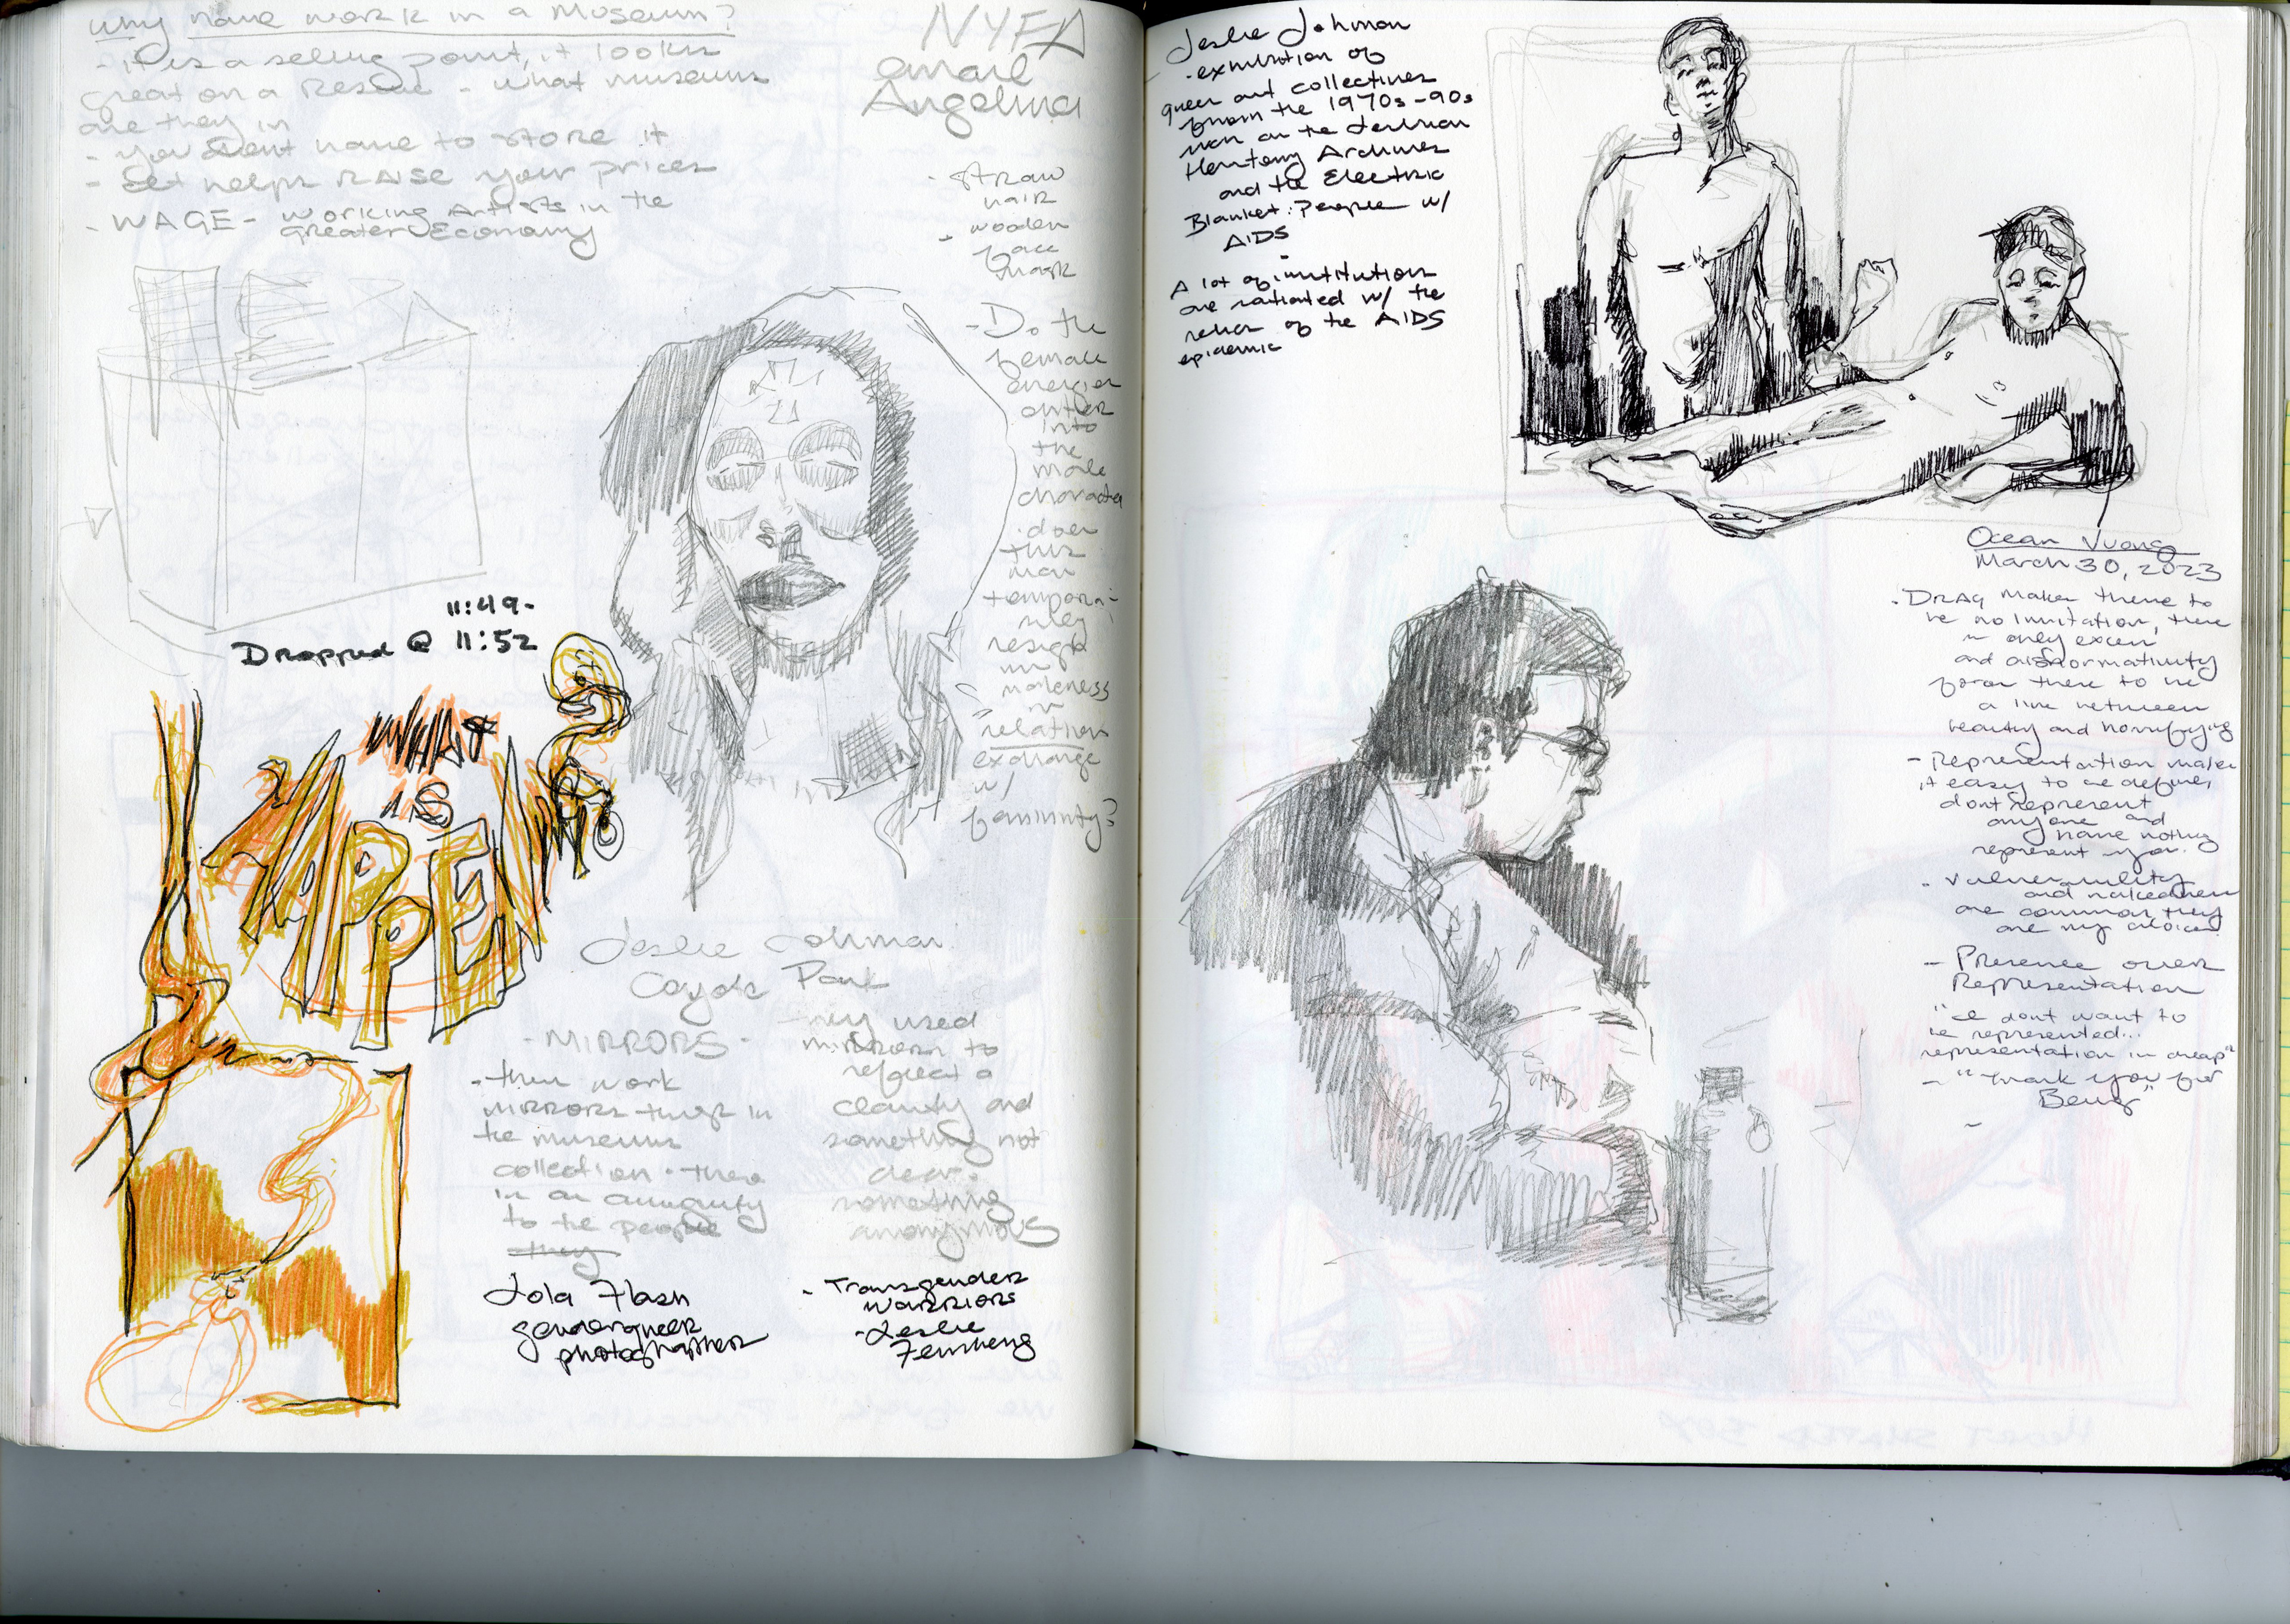 Why have work in a Museum?
- it is a selling point, it looks
great on a Resume - what museums
are they in
- you dont have to store it
- Set helps RAISE your prices
- WAGE - Working Artists in the
Greater Economy
NYFA
email
Angelina
- straw
hair
- wooden
face
mask
- Do the
female
energies
enter
into
the
male
character
- does
this
man
tempora-
rily
resign
his
maleness
in
relation
exchange
w/
feminity?
11:49-
Dropped @ 11:52
WHAT
IS
HAPPENING
Leslie Lohman
Coyote Park
- MIRRORS -
- their work
MIRRORS things in
the museums
collection. there
is an
to the people
they
they used
mirrors to
reflect a
clarity and
something not
clear.
something
anonymous
Lola Flash
genderqueer
photographer
- Transgender
Warriors
- Leslie
Feinberg
Leslie Lohman
- exhibition of
queer art collectives
from the 1970s-90s
was on the Lesbian
Herstory Archives
and the Electric
Blanket: People w/
AIDS
A lot of institution
are w/ the
of the AIDS
epidemic
Ocean Vuong
March 30, 2023
- DRAG makes there to
be no limitation, there
is only excess
and
for there to be
a line between
beauty and horrifying
- Representation makes
it easy to be defined,
dont represent
anyone and
have nothing
represent you.
- Vulnerability
and nakedness
are common, they
are my choices
- Presence over
Representation
"I dont want to
be represented...
representation is cheap"
- "Thank you for
Being"